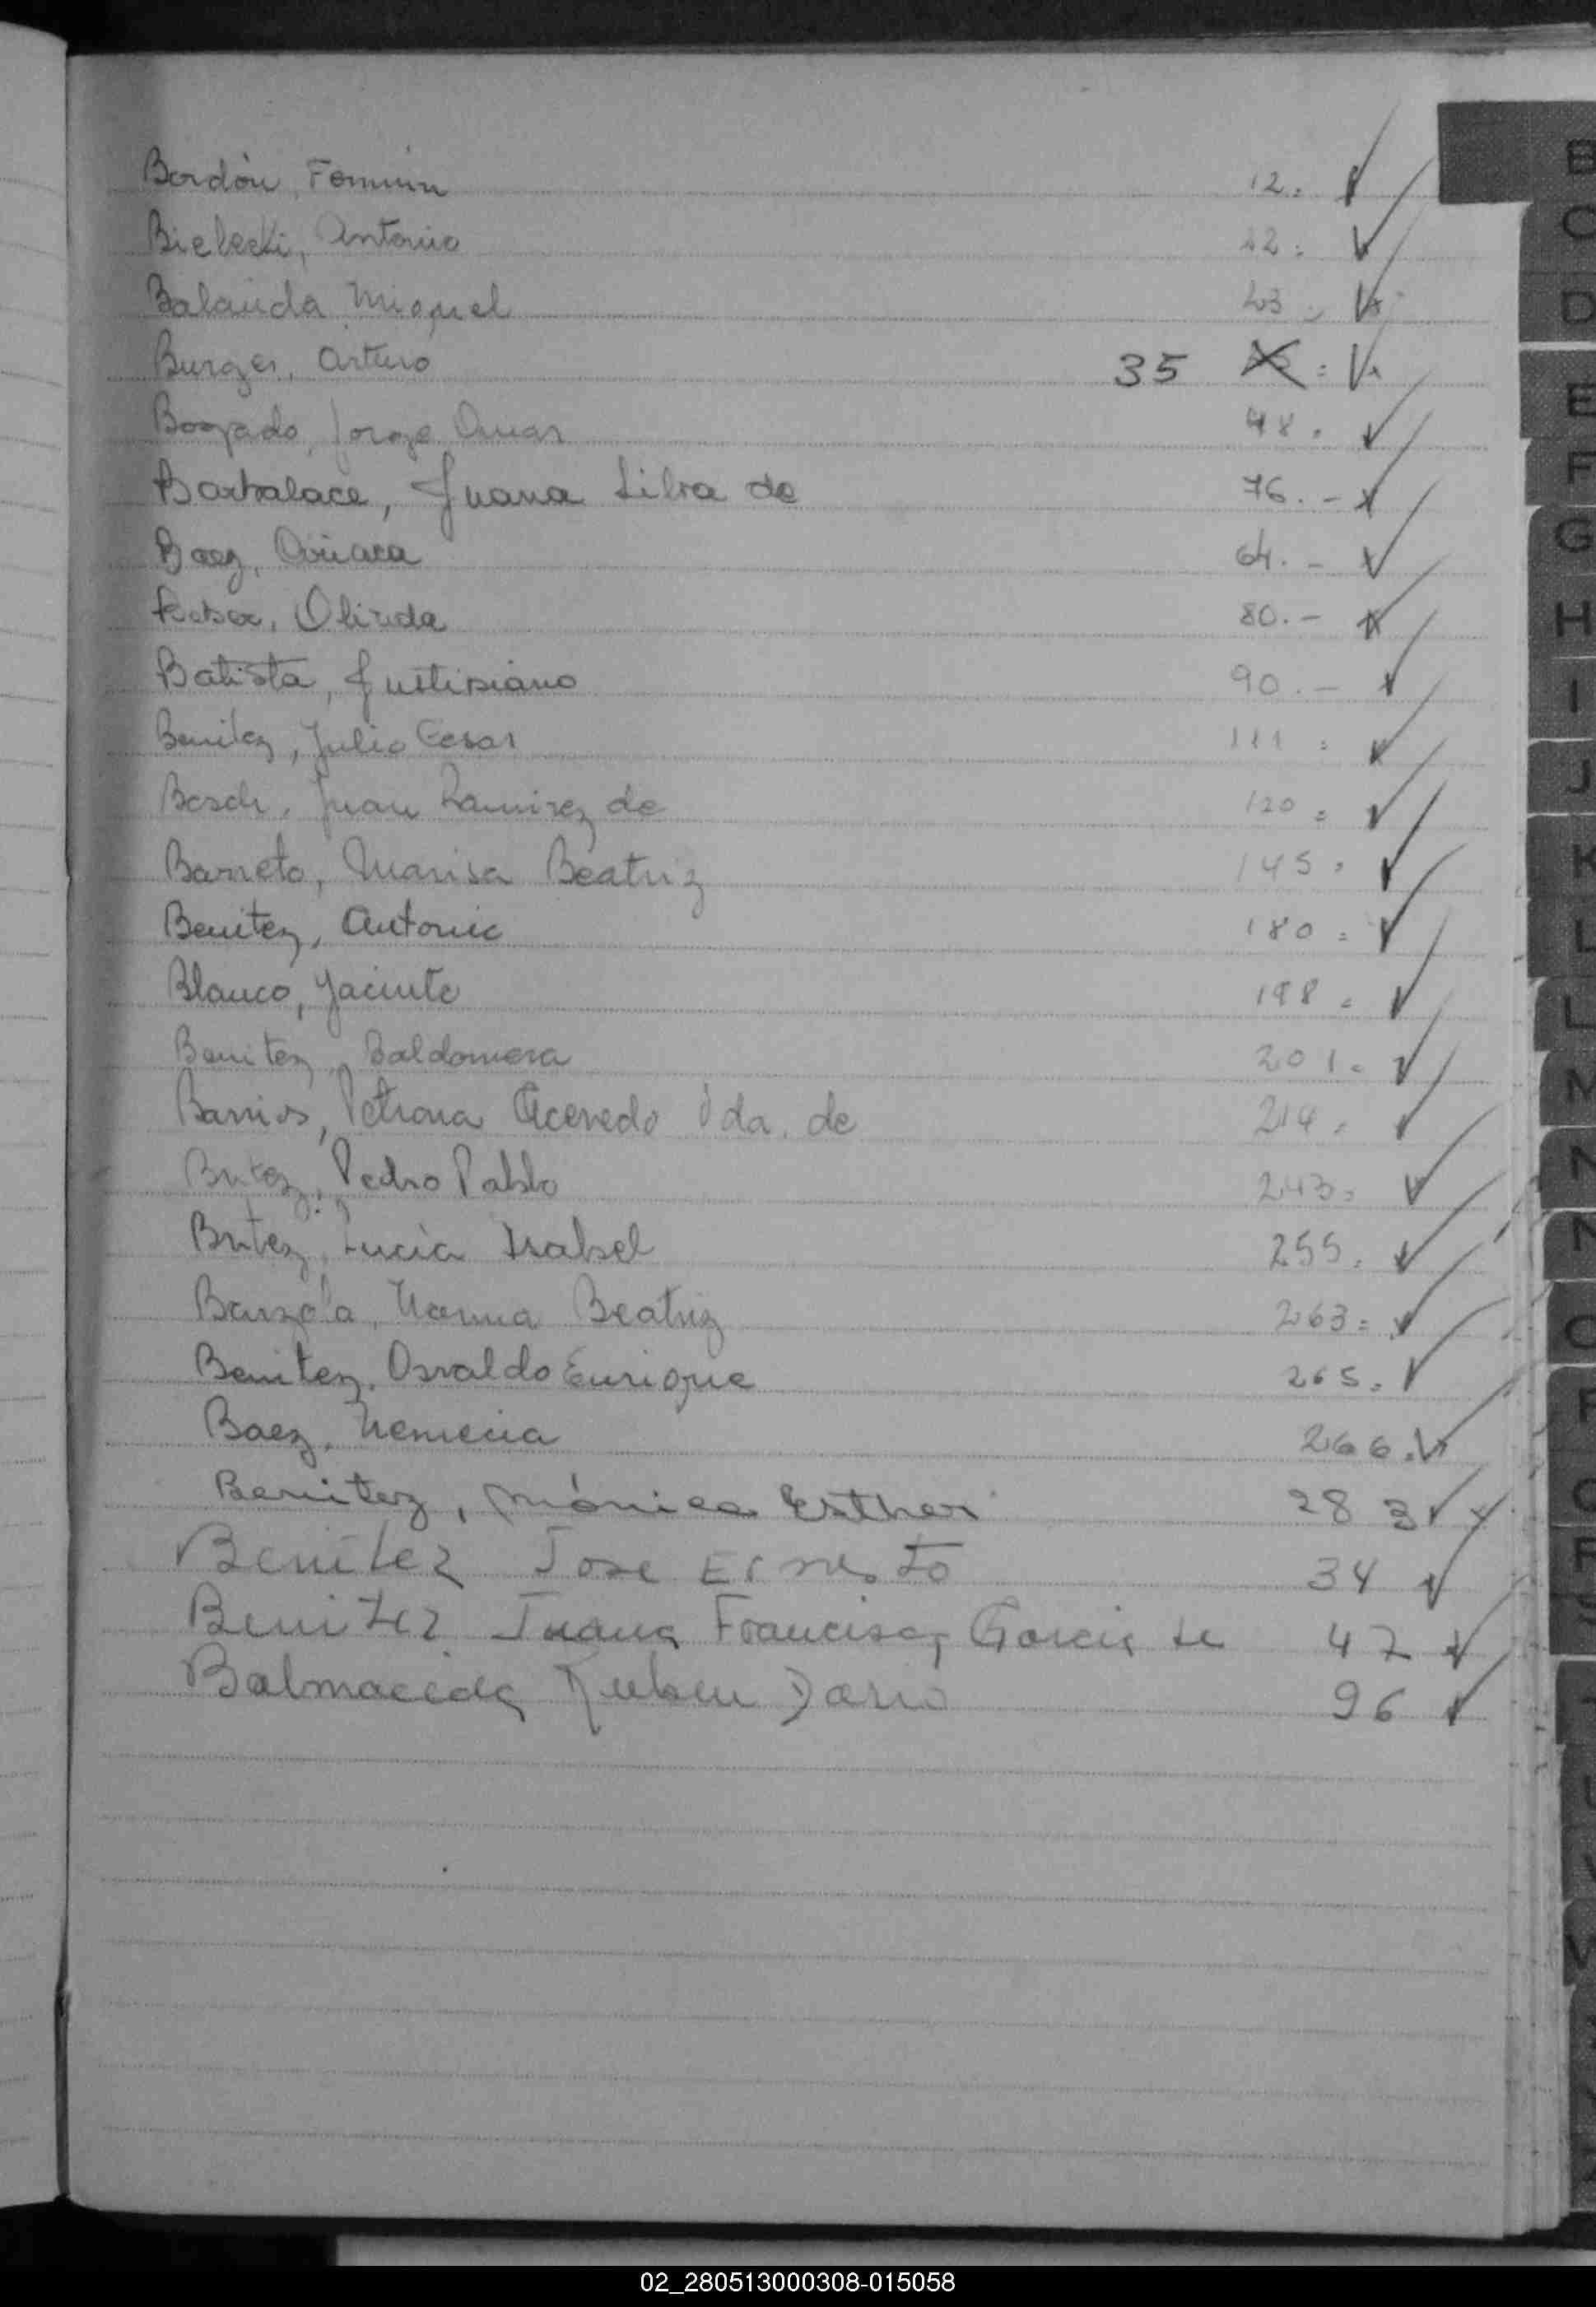 Bordón, Fermín 12.
Bielecki, Antonio 22.
Balauda Miguel 23.
Burger, Arturo 35
Bogado, Jorge Omar 48.
Barbalace, Juana Silva de 76.-
Baez, 64.-
Olinda 80.-
Batista, Justiniano 90.-
Benitez, Julio Cesar 111.
Bosch, Juan Ramirez de 120.
Barreto, Marisa Beatriz 145.
Benitez, Antonio 180.
Blanco, Jacinto 198.
Benitez, Baldomera 201.
Barrios, Petrona Acevedo Vda. de 214.
Britez, Pedro Pablo 243.
Britez, Lucía Isabel 255.
Barzola, Norma Beatriz 263.
Benitez, Osvaldo Enrique 265.
Baez, Nemecia 266.
Benitez, Mónica Esther 283
Benitez Jose Ernesto 34
Benitez Juana Francisca Garcia de 47
Balmaceda Ruben Dario 96
B
C
D
E
F
G
H
I
J
K
L
02_280513000308-015058